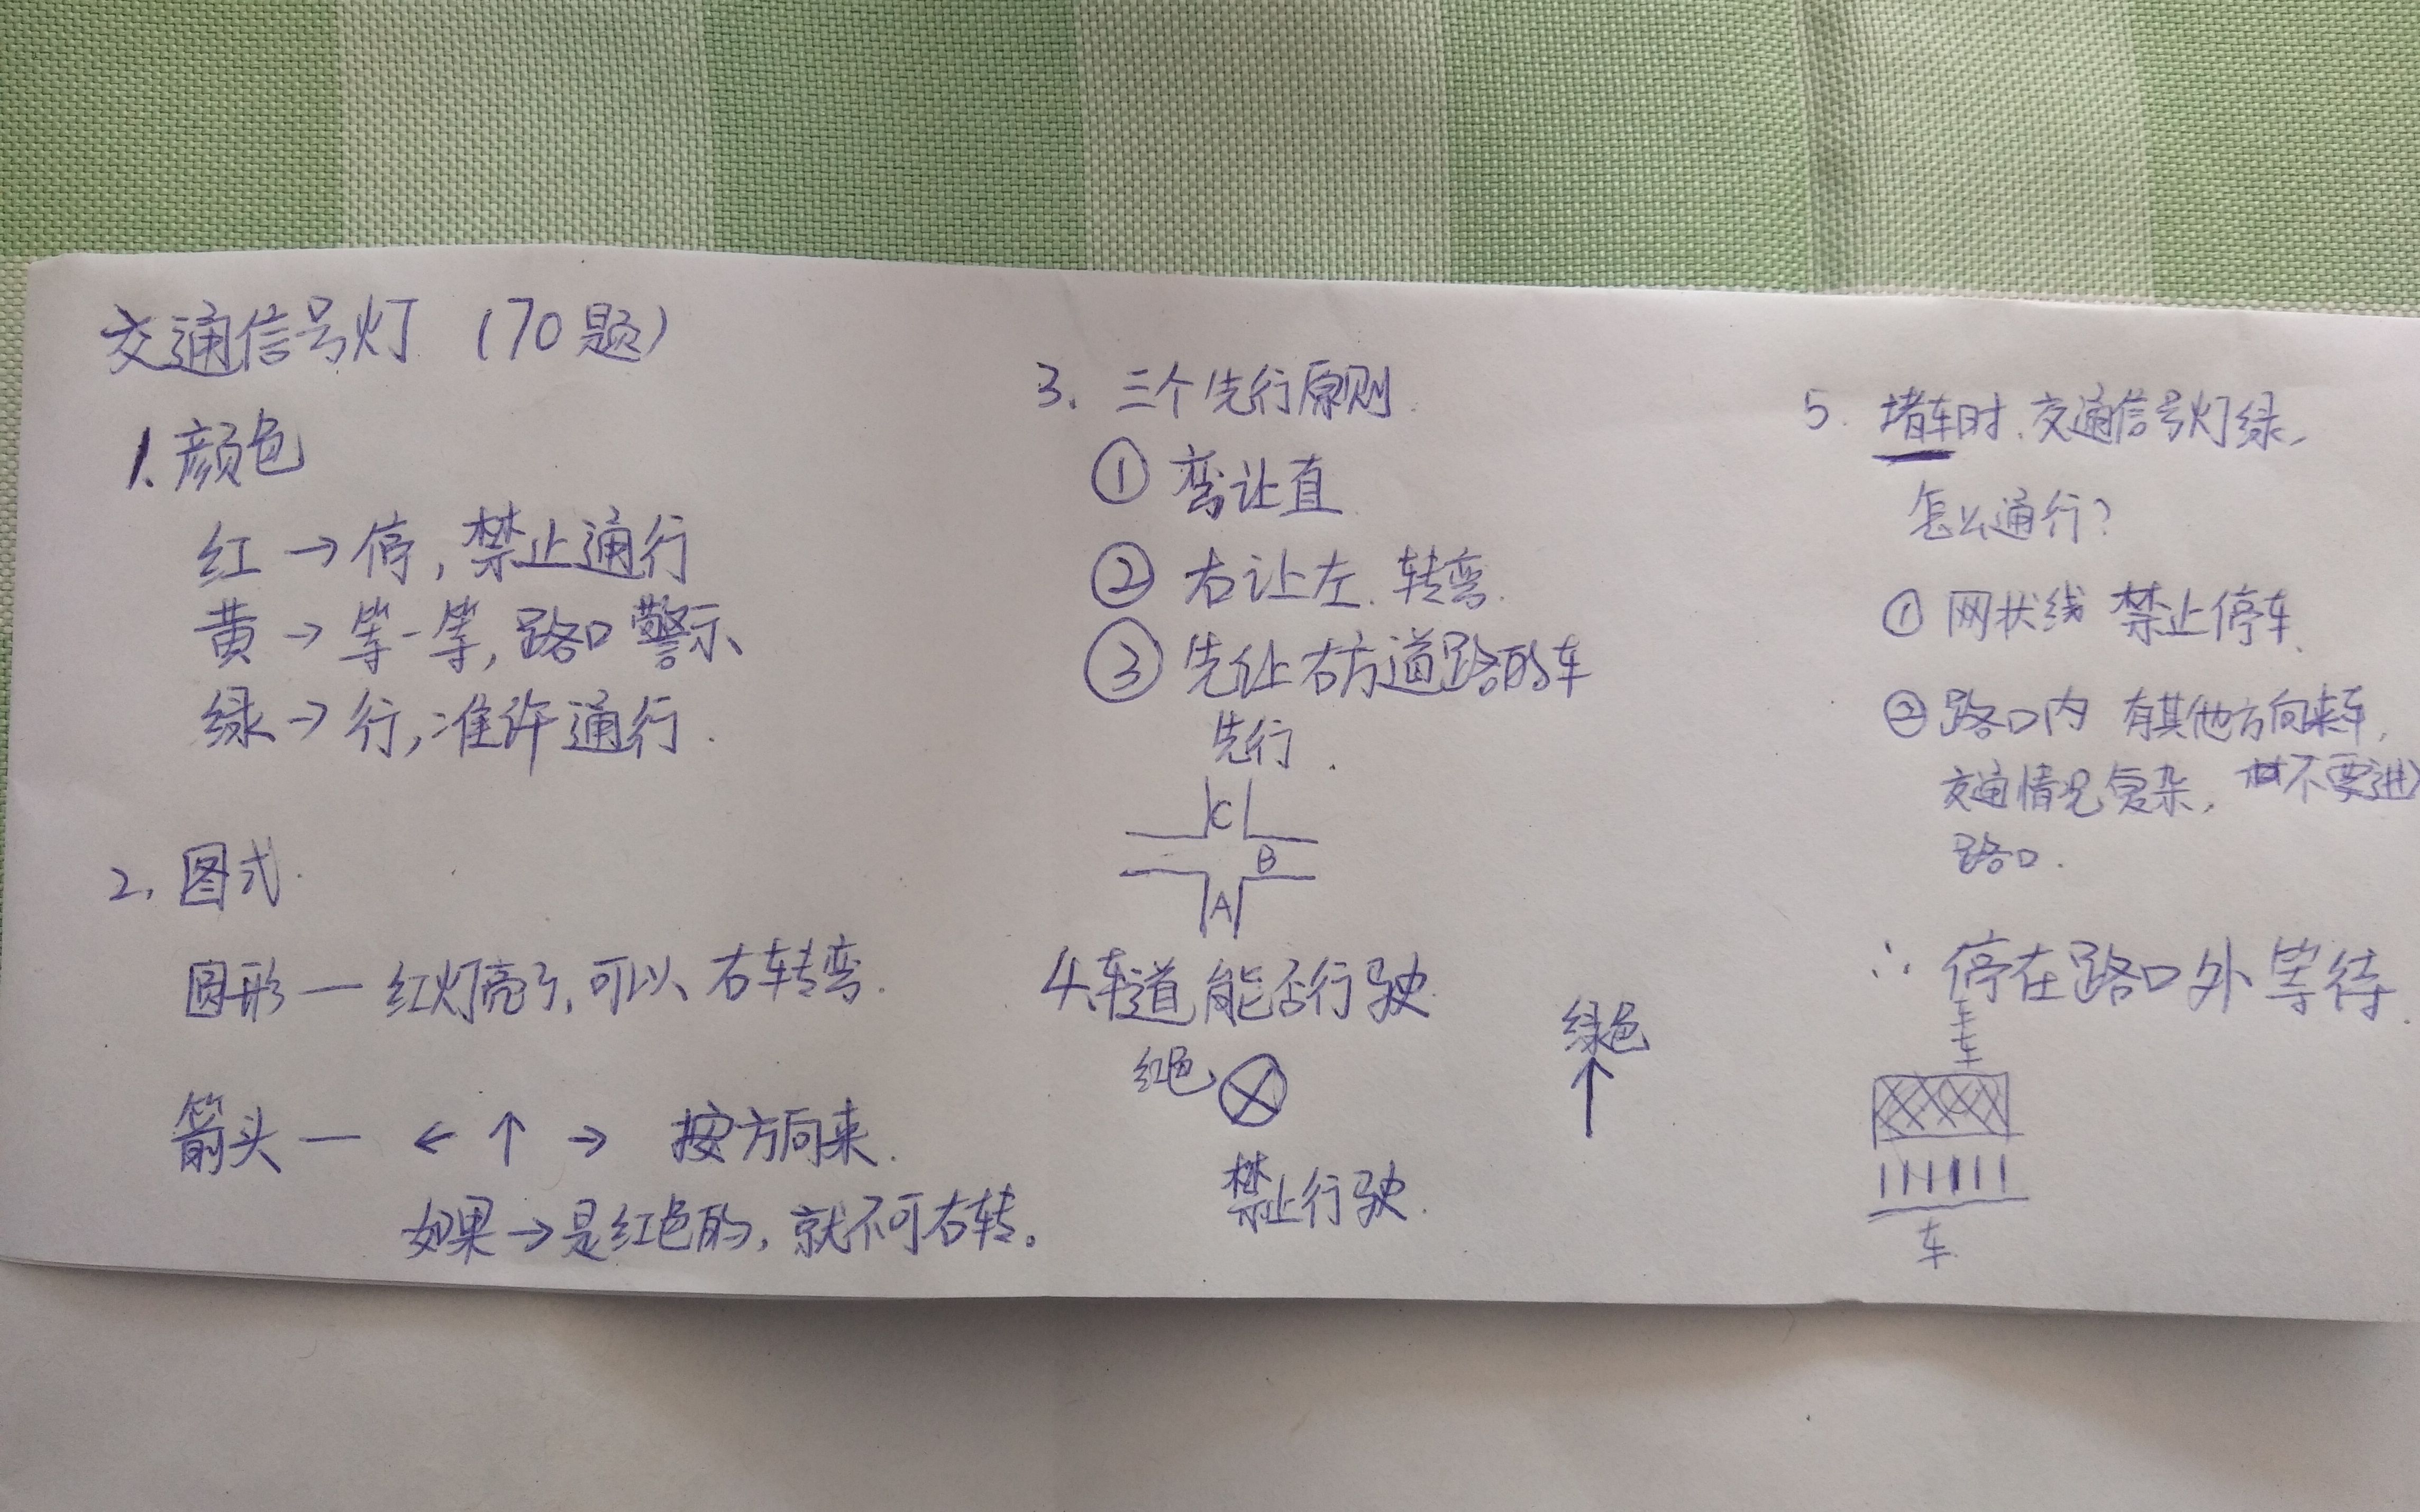 交通信号灯 (70题)
1. 颜色
红 → 停, 禁止通行
黄 → 等一等, 路口警示
绿 → 行, 准许通行.
2. 图式.
圆形 — 红灯亮了, 可以右车转弯.
箭头 — ← ↑ → 按方向来.
如果 → 是红色的, 就不可右转。
3. 三个先行原则.
① 弯让直
② 右让左. 转弯.
③ 先让右方道路的车
先行.
C
B
A
4. 车道能否行驶.
红色 绿色
↑
禁止行驶.
5. 堵车时. 交通信号灯绿,
怎么通行?
① 网状线 禁止停车.
② 路口内 有其他方向来车,
交通情况复杂, 不要进
路口.
∴ 停在路口外等待.
车
车